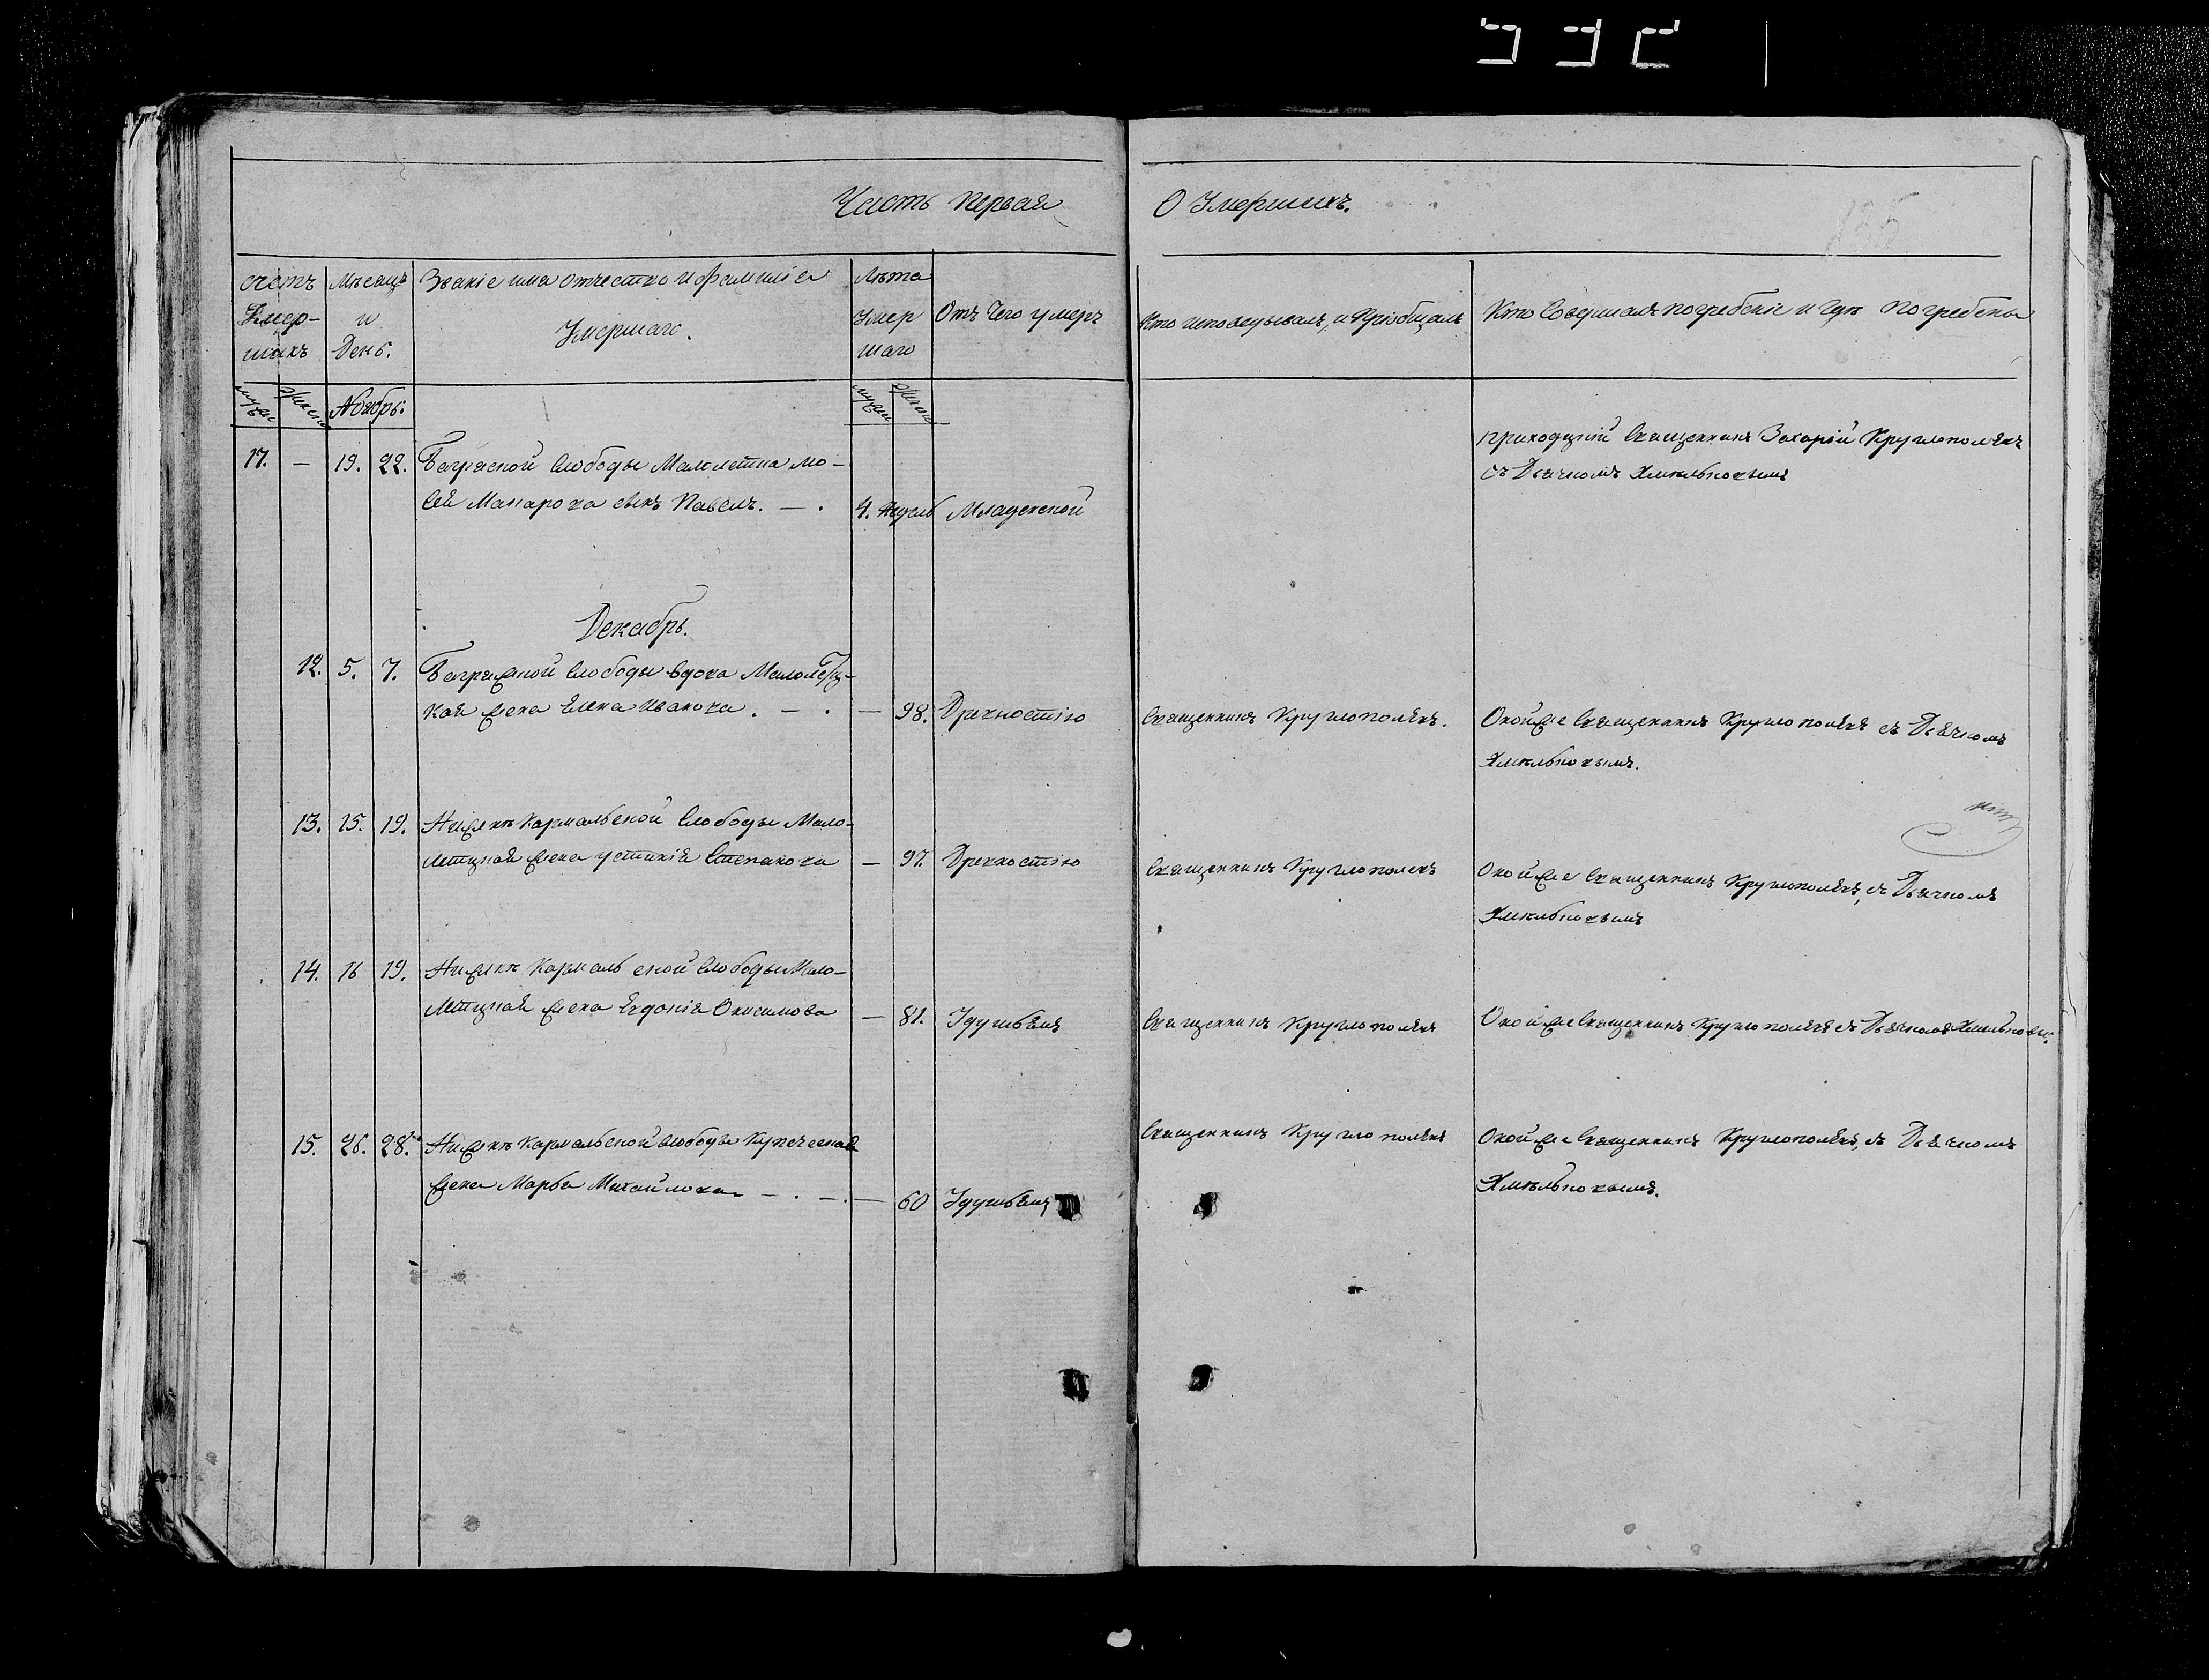 Часть первая
О Умершихъ.
Счетъ Умер-
шихъ
Мѣсяцъ
и
День.
Званіе имя отчество и фамилія
Умершаго.
Лѣта
Умер
шаго
Отъ Чего умеръ
Кто исповедывалъ, и Пріобщалъ
Кто Совершалъ погребеніе и Гдѣ погребены
Ноябрь.
17. — 19. 22. слободы Малолетка Мо-
сея сынъ Павелъ. — . 4. Недель Младенской
приходскій Священникъ Захарій Круглополевъ
съ Дьячкомъ Хмельновымъ
Декабрь.
12. 5. 7. слободы вдова
кая жена Елена Иванова. — . — 98. Древностію
Священникъ Круглополевъ.
Онойже Священникъ Круглополевъ съ Дьячкомъ
Хмельновымъ.
13. 15. 19. Нижне Кармальской Слободы Мало-
летцкая жена Устинія Степанова — 97. Древностію
Священникъ Круглополевъ
Онойже Священникъ Круглополевъ, съ Дьячкомъ
Хмельновымъ
14. 16 19. Нижне Кармальской Слободы Мало-
летцкая жена Евдокія Онисимова — 81. Удушьемъ
Священникъ Круглополевъ
Онойже Священникъ Круглополевъ съ Дьячкомъ Хмельновы.
15. 26. 28. Нижне Кармальской слободы Купеческая
жена Марфа Михайлова — . — . — 60 Удушьемъ
Священникъ Круглополевъ
Онойже Священникъ Круглополевъ, съ Дьячкомъ
Хмельновымъ.